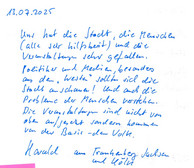 18.07.2025
Uns hat die Stadt, die Menschen
(alle sehr hilfsbereit) und die
Veranstaltung sehr gefallen.
Politiker und Medien, besonders
aus dem "Westen" sollten sich die
Stadt anschauen! Und auch die
Probleme der Menschen verstehen.
Die Veranstaltungen sind nicht von
oben aufgesetzt sondern kommen
von der Basis - dem Volke.
Harald aus Frankenberg Sachsen
und